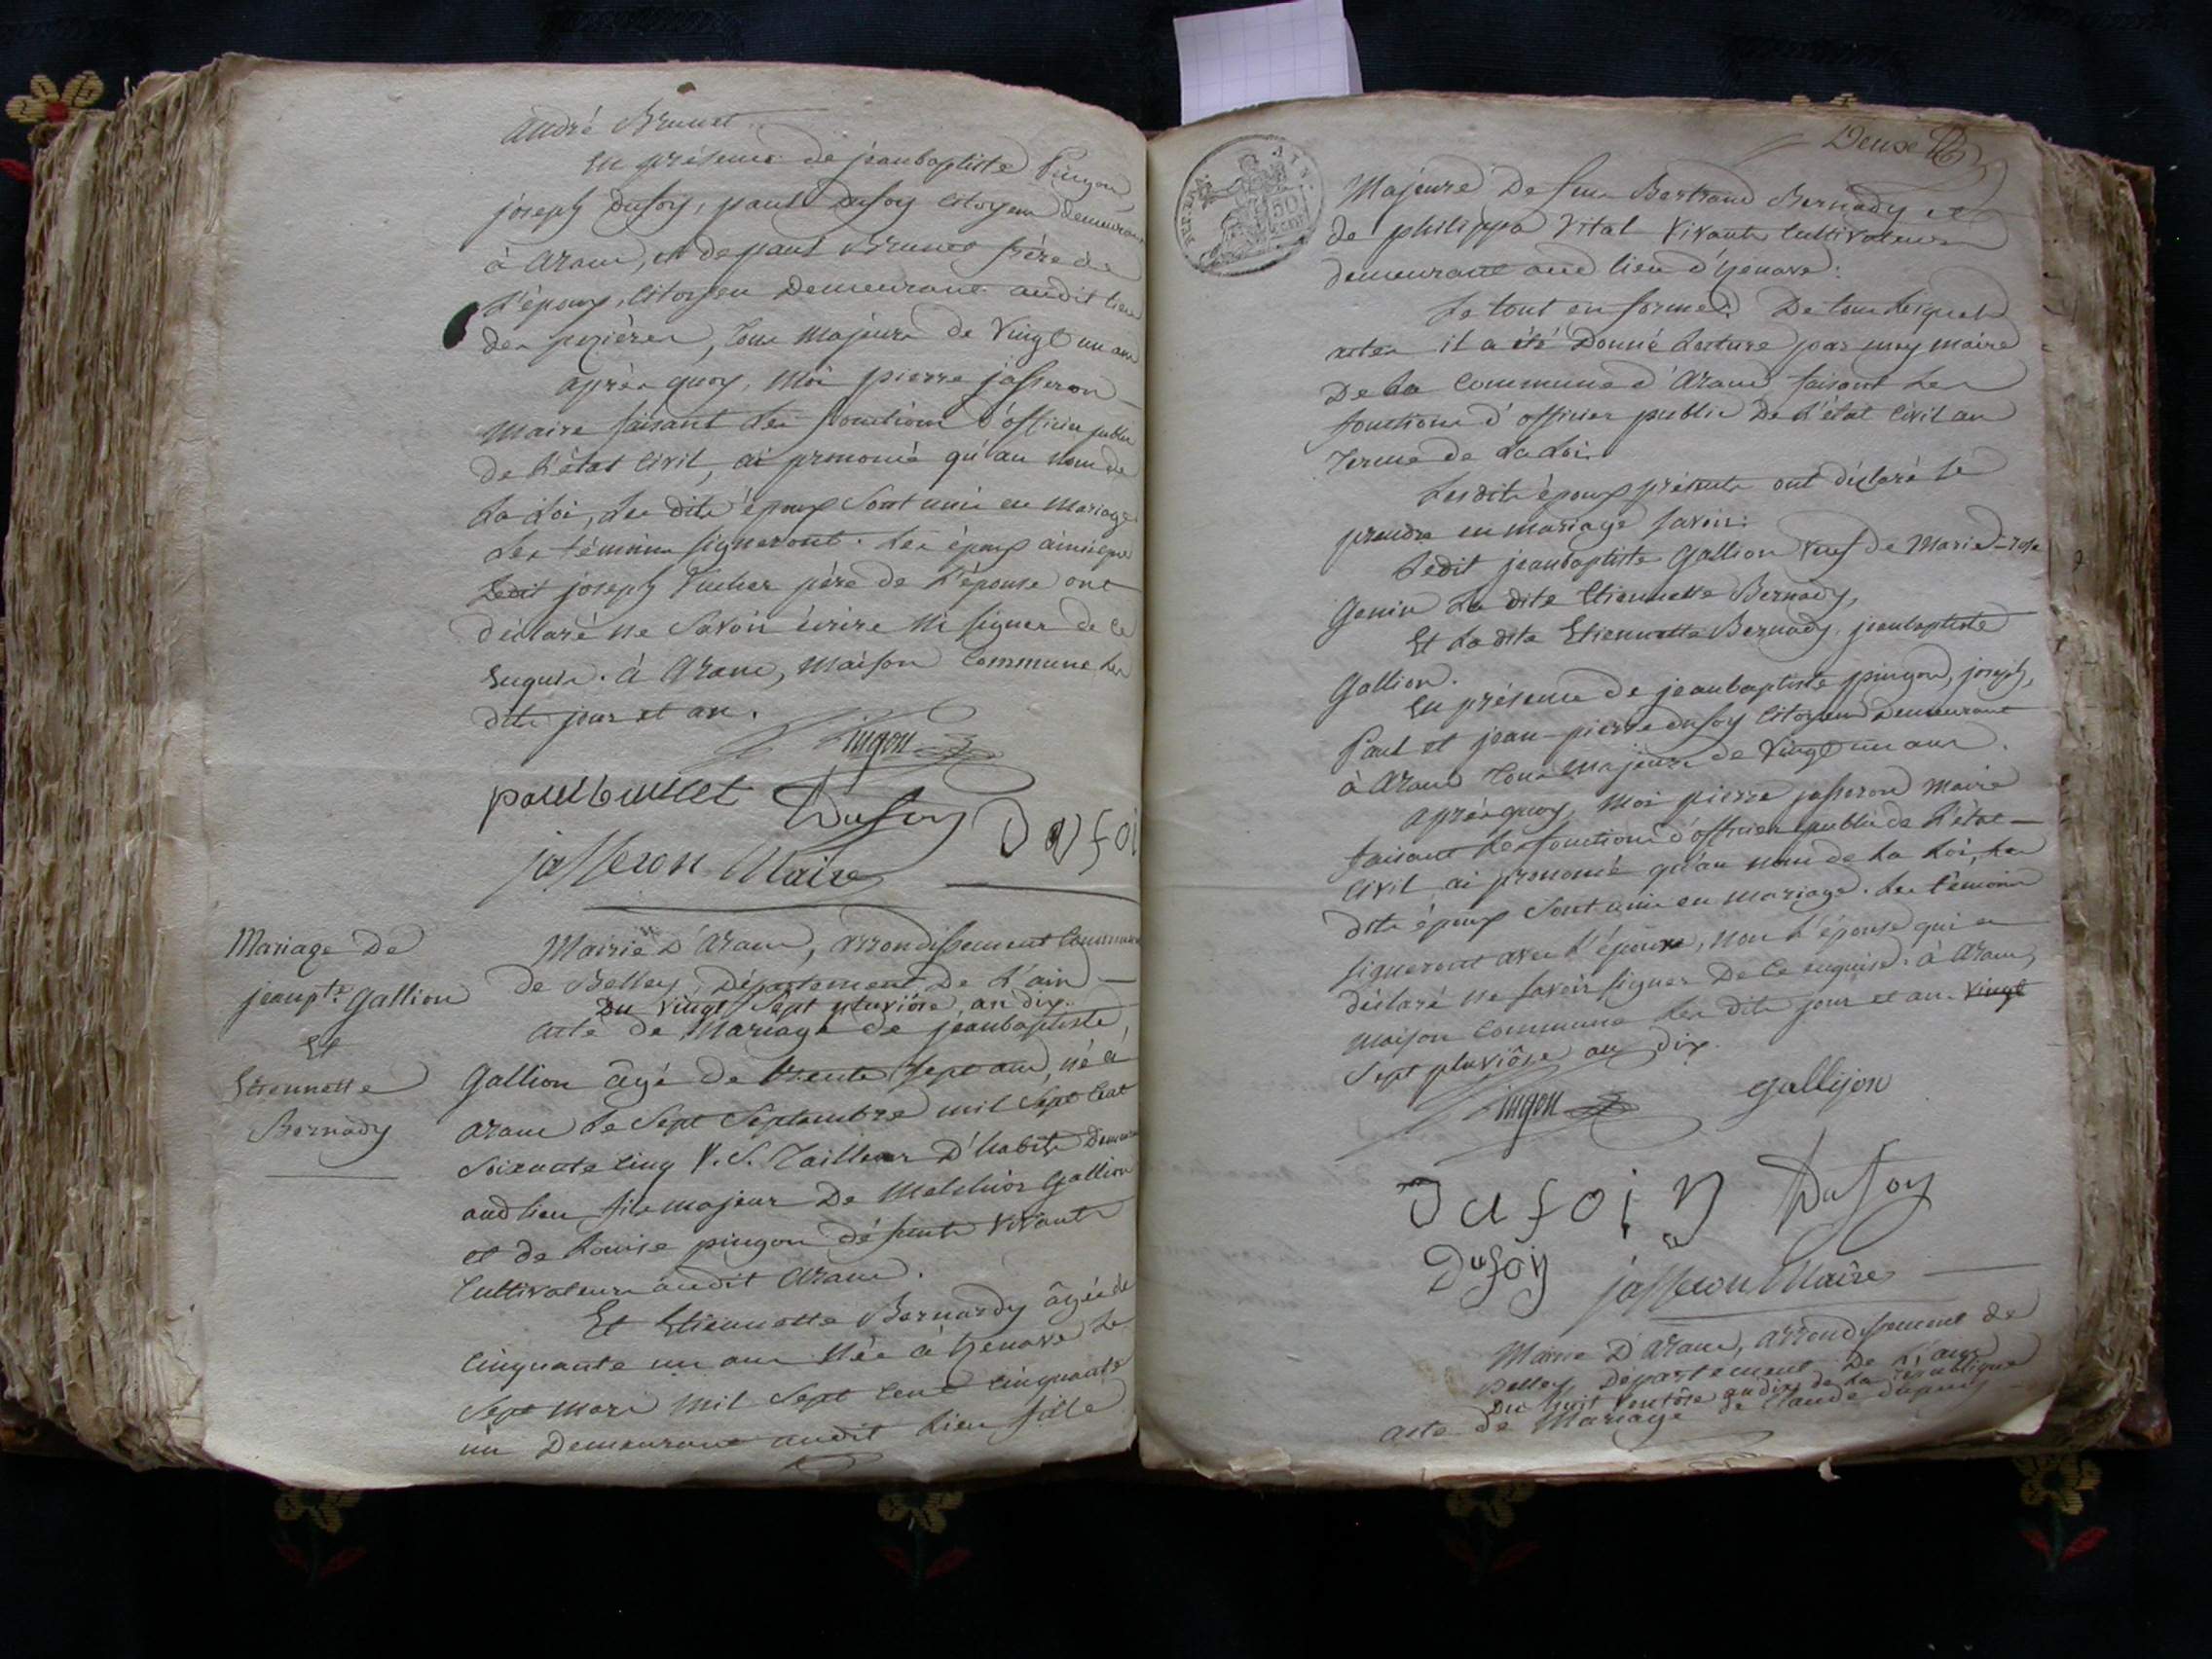 andré Brunet
en présence de jeanbaptiste Pingon
joseph Dufoy, paul Dufoy citoyens demeurant
à Aranc, et de paul Brunet frère de
L'époux, Citoyen Demeurant audit lieu
des pezières, tous majeurs de Vingt un ans
après quoy, Moi pierre jasseron
Maire faisant les fonctions d'officier public
de L'état Civil, ai prononcé qu'au nom de
La Loi, Les dits époux sont unis en Mariage
Les témoins signeront. Les époux ainsi que
Ledit joseph père de L'épouse ont
déclaré ne Savoir écrire Ni signer de ce
Enquis. à Aranc, Maison Commune Les
dits jour et an.
Pingon
paul brunet Dufoy Dufoi
jasseron Maire
Mariage De
jeanpte Gallion
Et
Etiennette
Bernady
Mairie D'Aranc, arrondissement Communal
de Belley, Département De L'ain
Du Vingt Sept pluviôse an dix.
acte de Mariage de jeanbaptiste
Gallion âgé de trente sept ans, né à
aranc Le Sept Septembre mil Sept Cent
Soixante cinq V.S. Tailleur D'habits Demeurant
aud lieu fils majeur De Melchior Gallion
et de Louise pingon défunts Vivants
Cultivateurs audit Aranc.
Et Etiennette Bernardy âgée de
Cinquante un ans Née à Izenave Le
Sept Mars Mil Sept Cent Cinquante
un Demeurant audit Lieu fille
Deux
REP. FRA.
50
CENT
Majeure De feu Bertrand Bernady et
de philippa Vital Vivants Cultivateurs
demeurant aud lieu d'Izenave:
Le tout en forme. De tous Lesquels
actes il a été Donné Lecture par moy maire
De La Commune d'Aranc faisant Les
fonctions d'officier public De L'état Civil au
Terme de La Loi.
Lesdits époux présents ont déclaré se
prendre en mariage savoir:
Ledit jeanbaptiste Gallion Veuf de Marie-rose
Genin La dite Etiennette Bernady,
Et La dite Etiennette Bernady, jeanbaptiste
Gallion.
En présence de jeanbaptiste pingon, joseph,
Paul et jean-pierre dufoy Citoyens Demeurant
à Aranc Tous Majeurs de Vingt un ans.
après quoy, Moi pierre jasseron Maire
faisant Les fonctions d'officier public de L'état
Civil ai prononcé qu'au nom de La Loi, Les
dits époux sont unis en mariage. Les témoins
signeront avec L'époux, non L'épouse qui a
déclaré ne savoir signer De Ce enquise. à Aranc,
Maison Commune Les dits jour et an. Vingt
Sept pluviôse an dix.
Pingon gallijon
Dufoiy Dufoy
Dufoy jasseron Maire
Mairie D'Aranc, arrondissement de
Belley, Département De L'ain
Du huit Ventôse an dix de La République
acte de Mariage de Claude dupuis